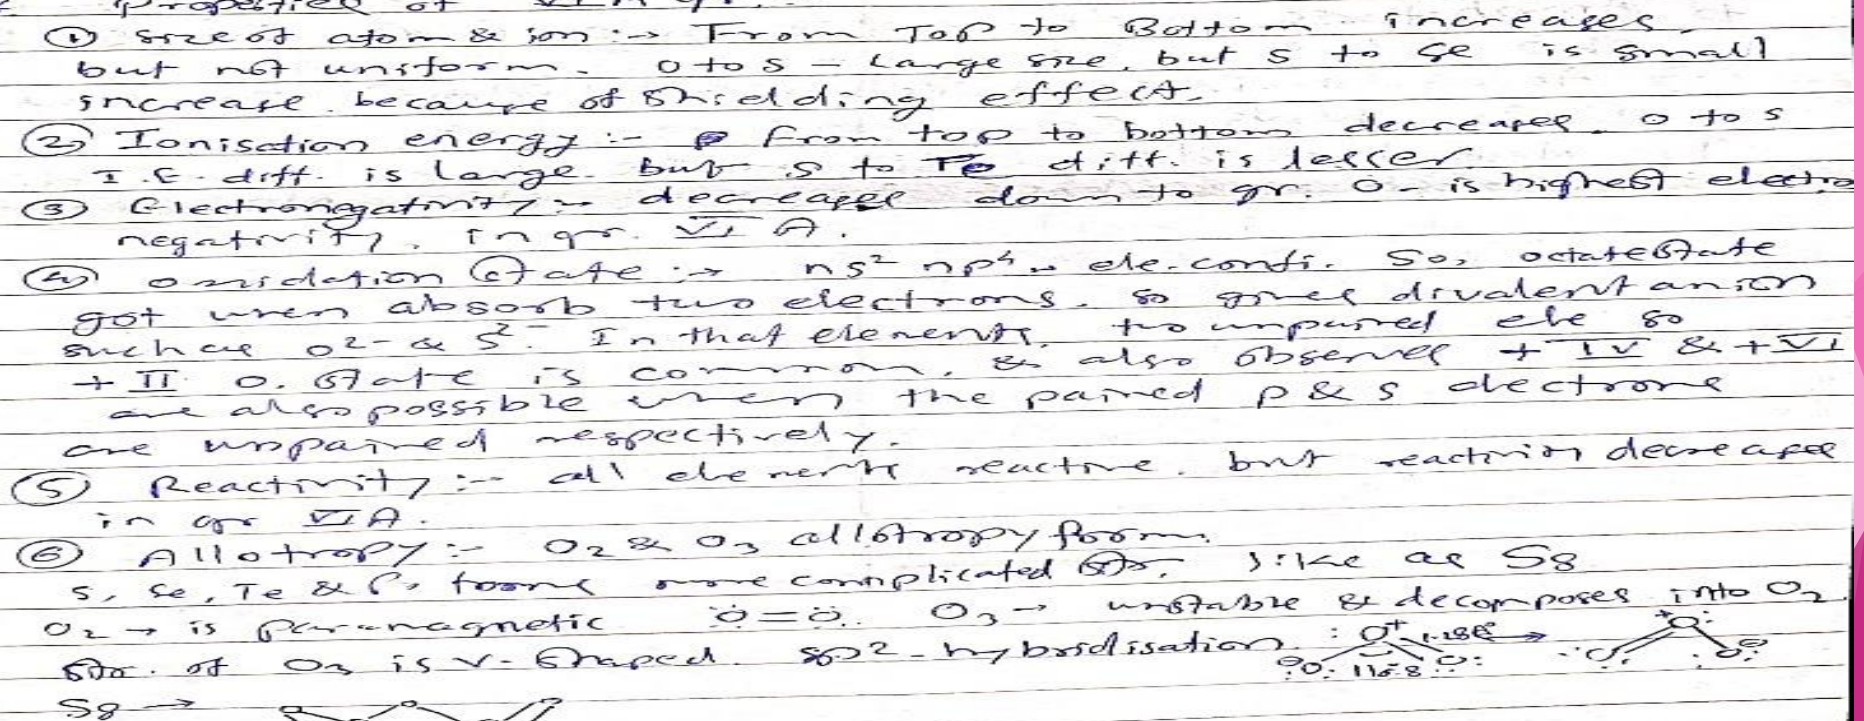 Properties of VI A gr.
① Size of atom & ion :→ From Top to Bottom increases,
but not uniform. O to S - Large size, but S to Se is small
increase because of Shielding effect.
② Ionisation energy :- From top to bottom decreases. O to S
I.E. diff. is large. but S to Te diff. is lesser
③ Electronegativity :- decreases down to gr. O - is highest electro
negativity, in gr. VI A.
④ Oxidation State :→ ns² np⁴ ele. confi. So, octate State
got when absorb two electrons. so gives divalent anion
such as O²⁻ & S²⁻. In that elements, two unpaired ele so
+ II O. State is common, & also observes + IV & + VI
are also possible when the paired p & s electrons
are unpaired respectively.
⑤ Reactivity :- all elements reactive. but reactivity decreases
in gr VI A.
⑥ Allotropy :- O₂ & O₃ allotropy form.
S, Se, Te & Po forms more complicated Str. like as S8
O₂ → is paramagnetic :O=O: O₃ → unstable & decomposes into O₂
Str. of O₃ is V-Shaped. sp²-hybridisation. :O⁺ 1.28 O: :O: 116.8 O O O
S8 →